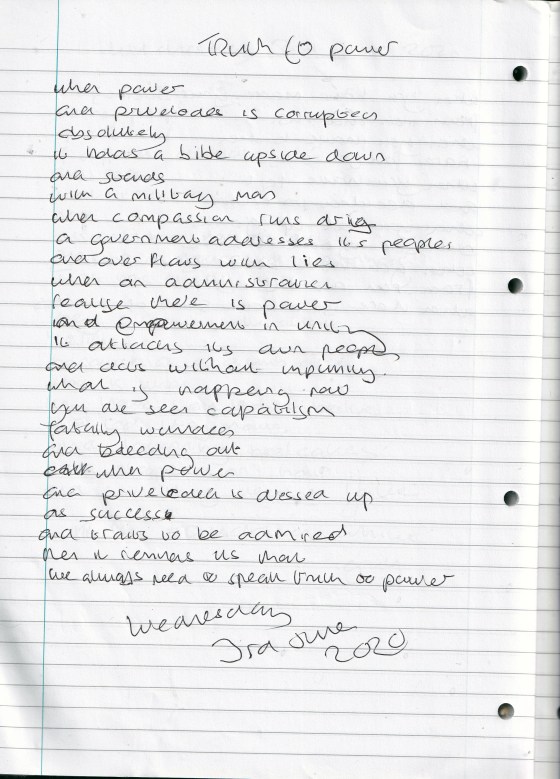 Truth to power
when power
and priveledes is corrupted
absolutely
it holds a bible upside down
and stands
with a military man
when compassion runs dry
a government addresses it's peoples
and over flows with lies
when an administration
realise there is power
and empowerment in unity
it attacks its own people
and acts without impunity.
what is happening now
you are seen capatilism
fatally wounded
and bleeding out
when power
and priveleded is dressed up
as success
and traits to be admired
then it reminds us that
we always need to speak truth to power
Wednesday
3rd June
2020